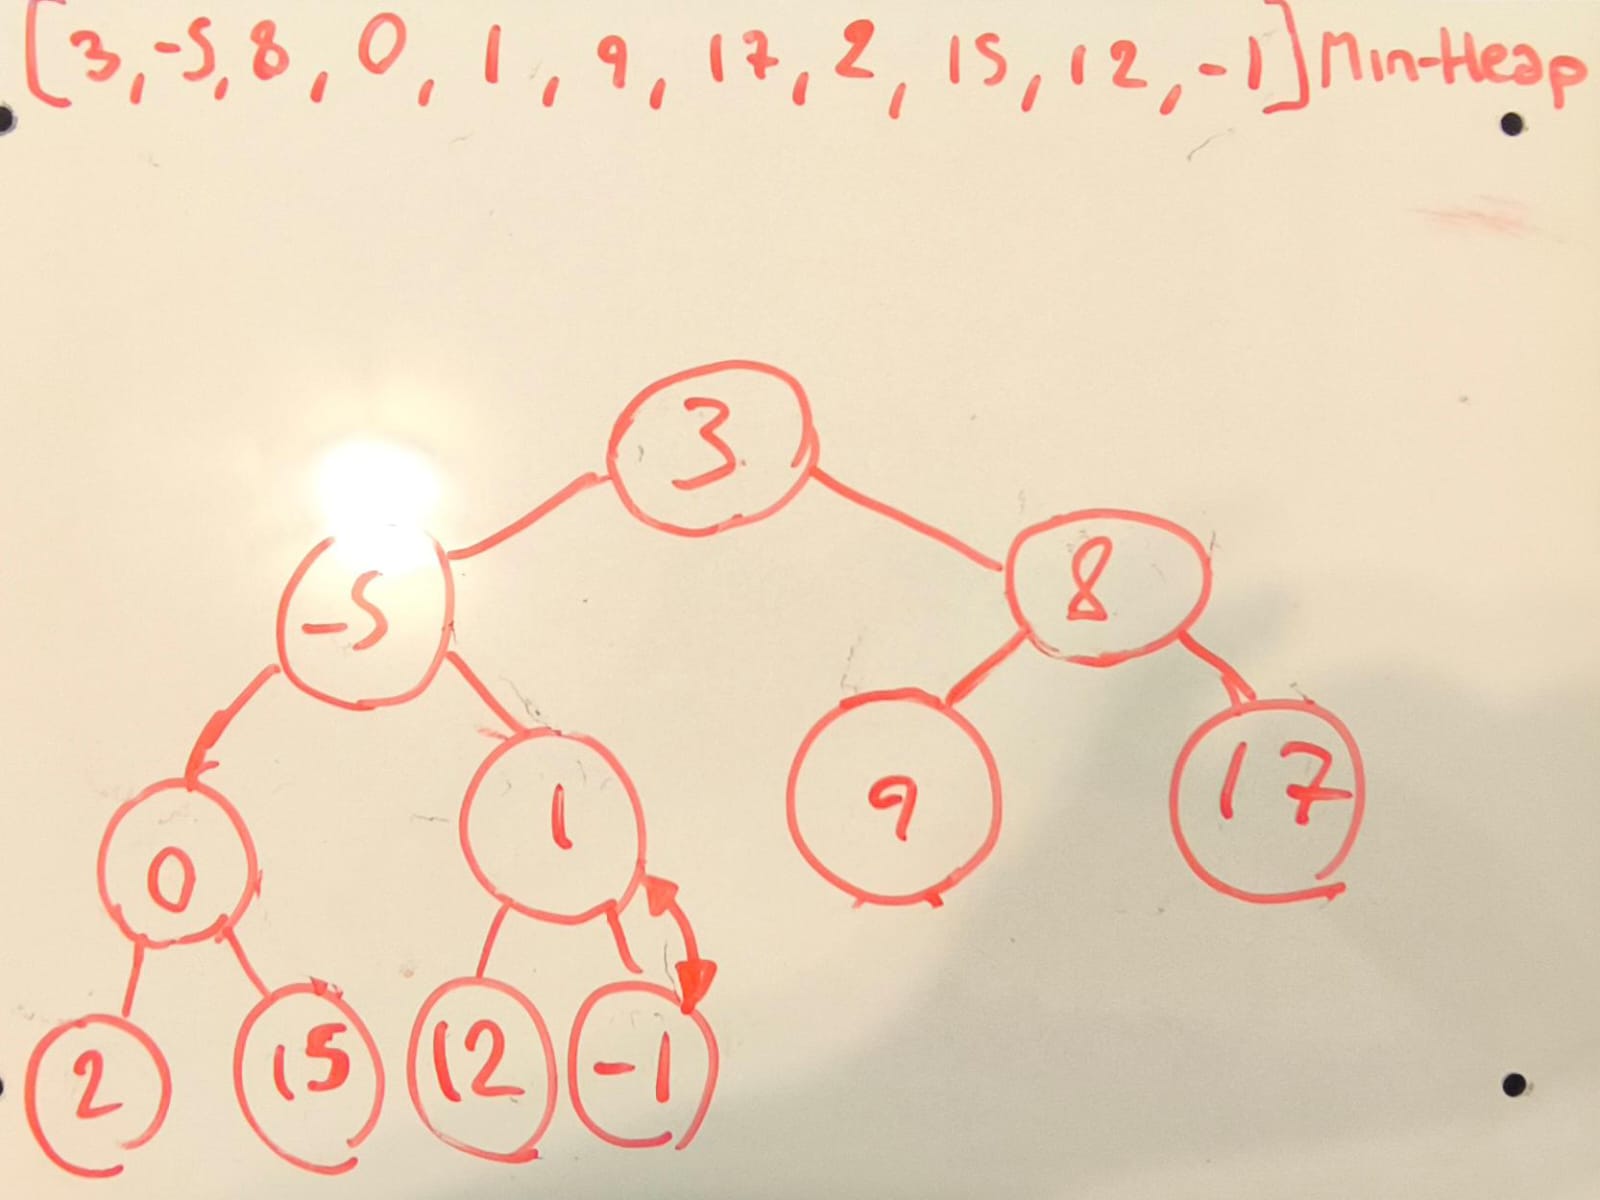 [3,-5,8,0,1,9,17,2,15,12,-1] Min-Heap
3
-5 8
0 1 9 17
2 15 12 -1